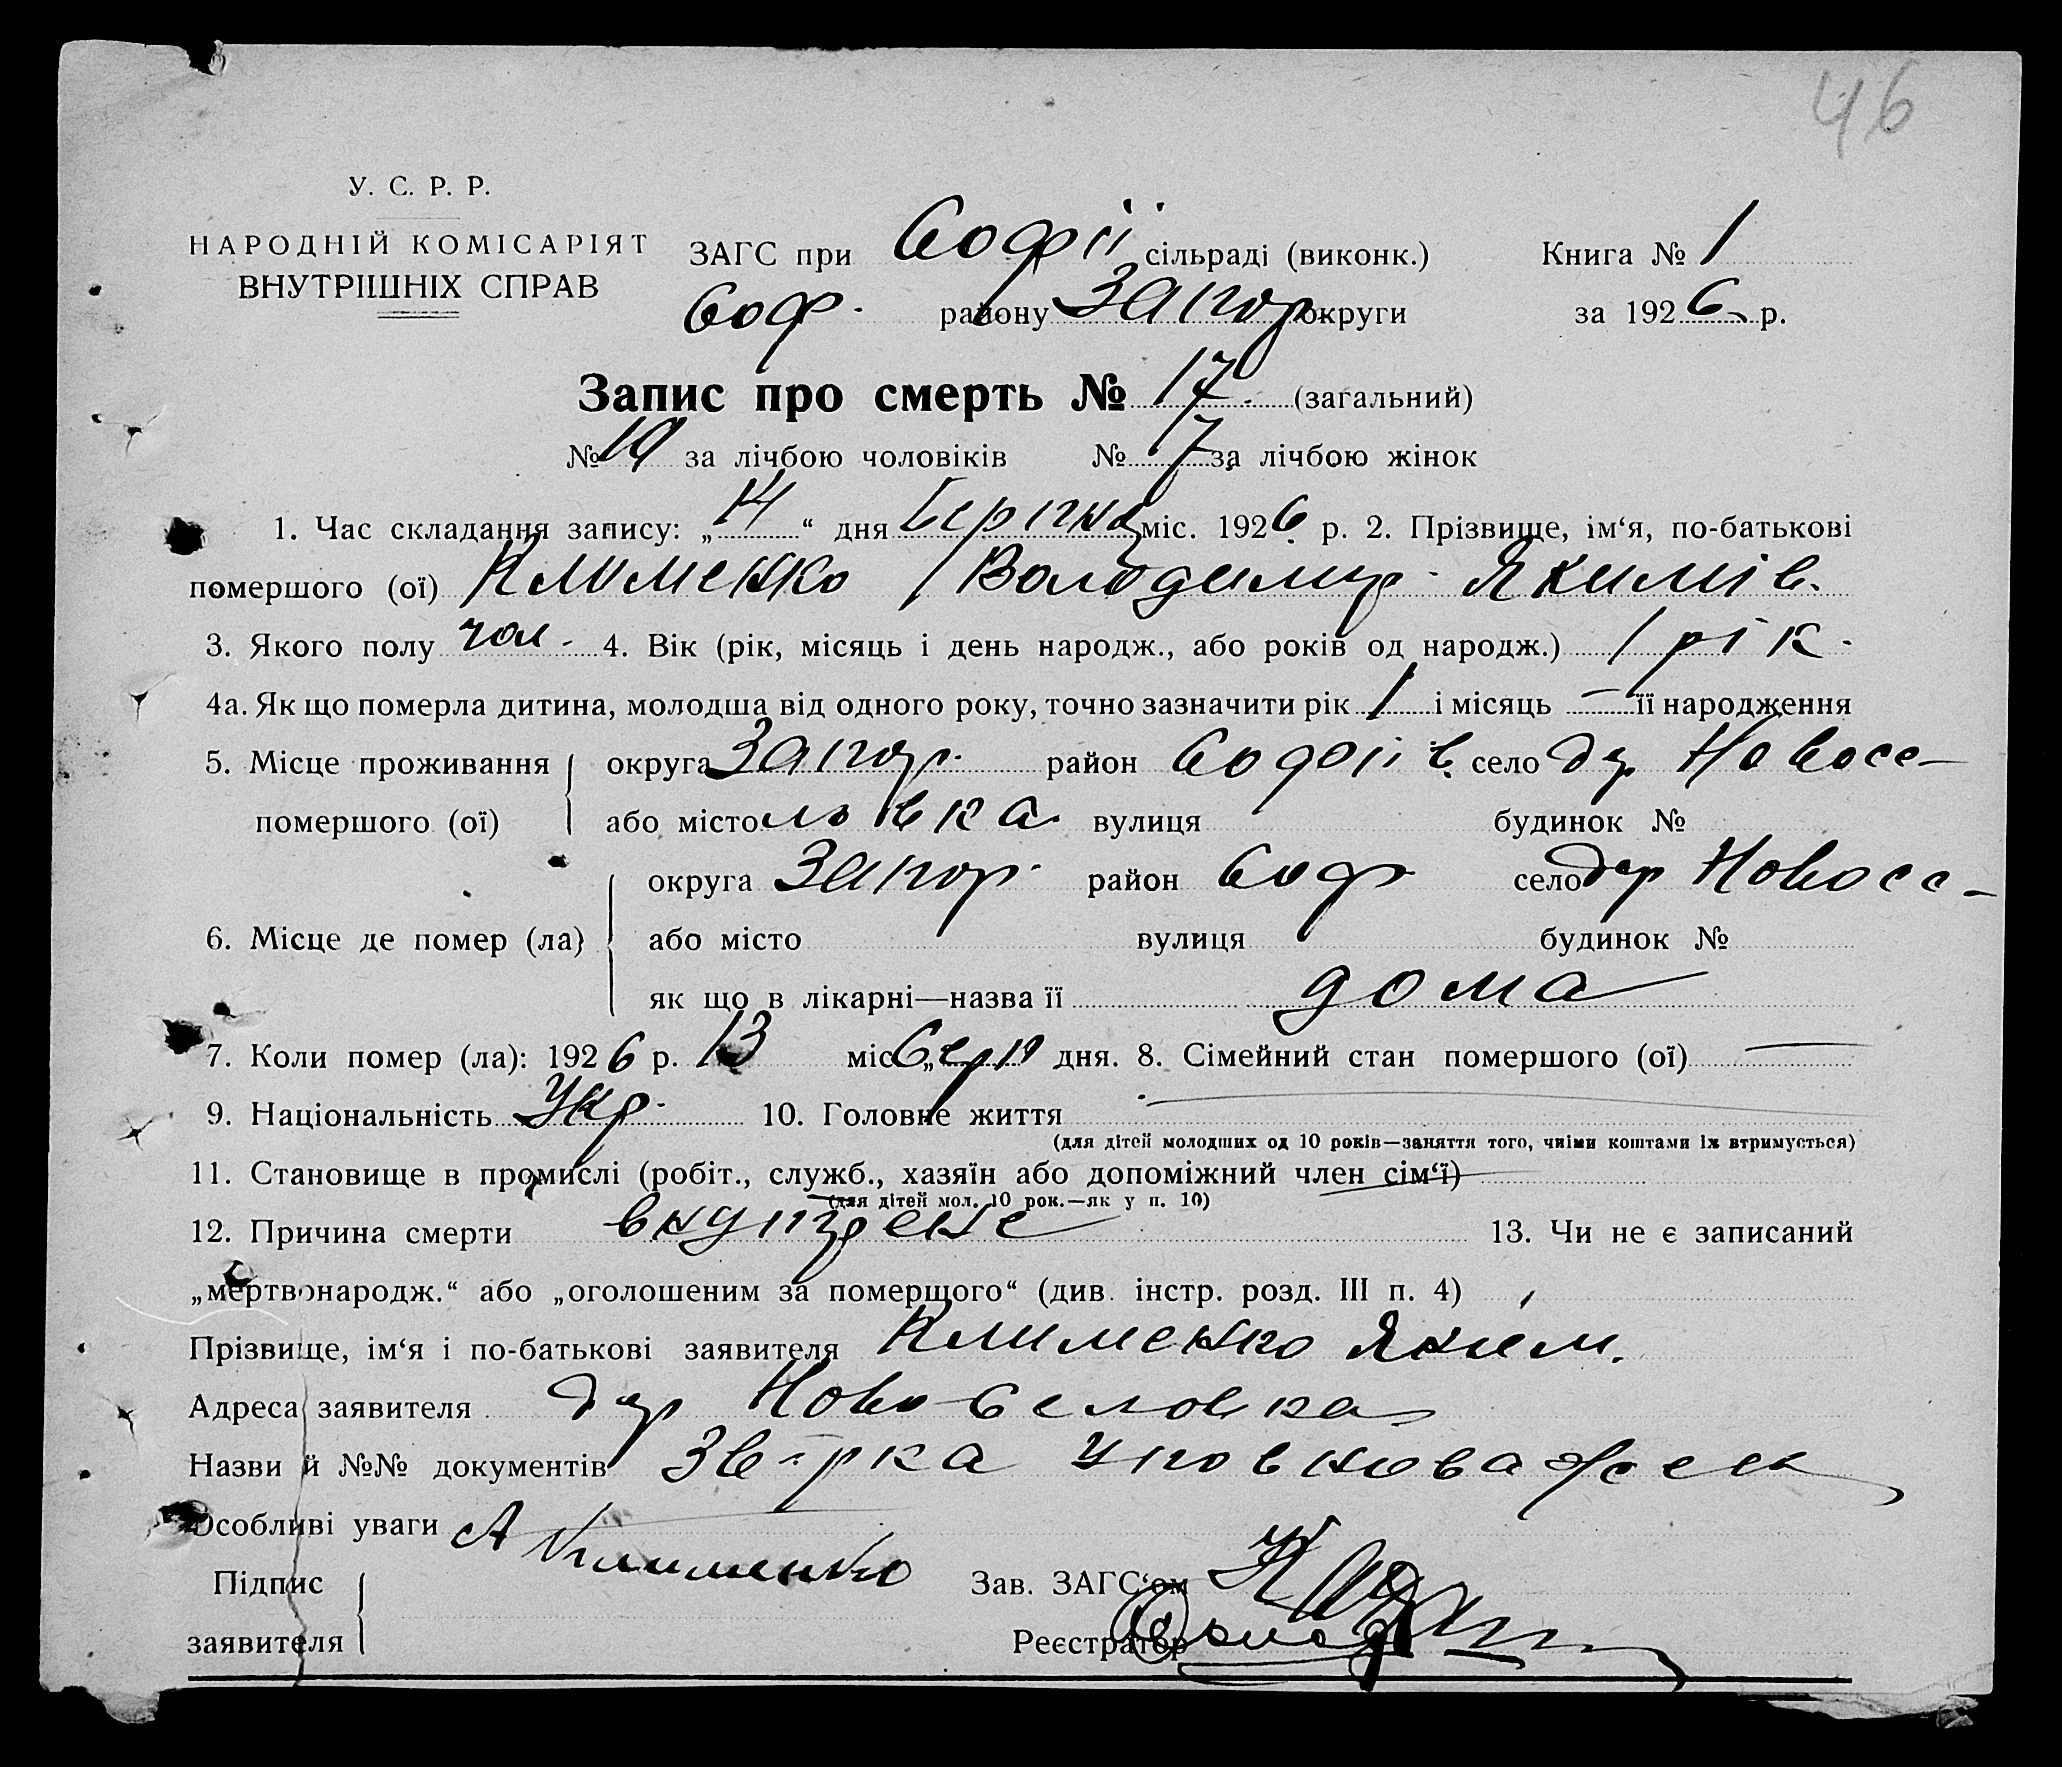 46
У. С. Р. Р.
НАРОДНІЙ КОМІСАРІЯТ
ВНУТРІШНІХ СПРАВ
ЗАГС при Софії сільраді (виконк.) Книга № 1
Соф. району Запор. округи за 1926 р.
Запис про смерть № 17. (загальний)
№ 10 за лічбою чоловіків № 7 за лічбою жінок
1. Час складання запису: „14“ дня Серпня міс. 1926 р. 2. Прізвище, ім‘я, по-батькові
помершого (ої) Клименко Володимир Якимів.
3. Якого полу чол. 4. Вік (рік, місяць і день народж., або років од народж.) 1 рік.
4а. Як що померла дитина, молодша від одного року, точно зазначити рік 1 і місяць — її народження
5. Місце проживання округа Запор. район Софіїв. село дер Новосе-
помершого (ої) або місто льівка вулиця будинок №
округа Запор. район Соф село дер Новосе-
6. Місце де помер (ла) або місто вулиця будинок №
як що в лікарні—назва її дома
7. Коли помер (ла): 1926 р. 13 міс „Серп“ дня. 8. Сімейний стан помершого (ої) —
9. Національність Укр. 10. Головне життя —
(для дітей молодших од 10 років—заняття того, чиїми коштами їх втримується)
11. Становище в промислі (робіт., служб., хазяїн або допоміжний член сім‘ї) —
(для дітей мол. 10 рок.—як у п. 10)
12. Причина смерти 13. Чи не є записаний
„мертвонародж.“ або „оголошеним за померщого“ (див. інстр. розд. III п. 4)
Прізвище, ім‘я і по-батькові заявителя Клименко Яким.
Адреса заявителя дер Новоселовка
Назви й №№ документів Звірка
Особливі уваги
Підпис А Клименко Зав. ЗАГС‘ом
заявителя Реєстратор